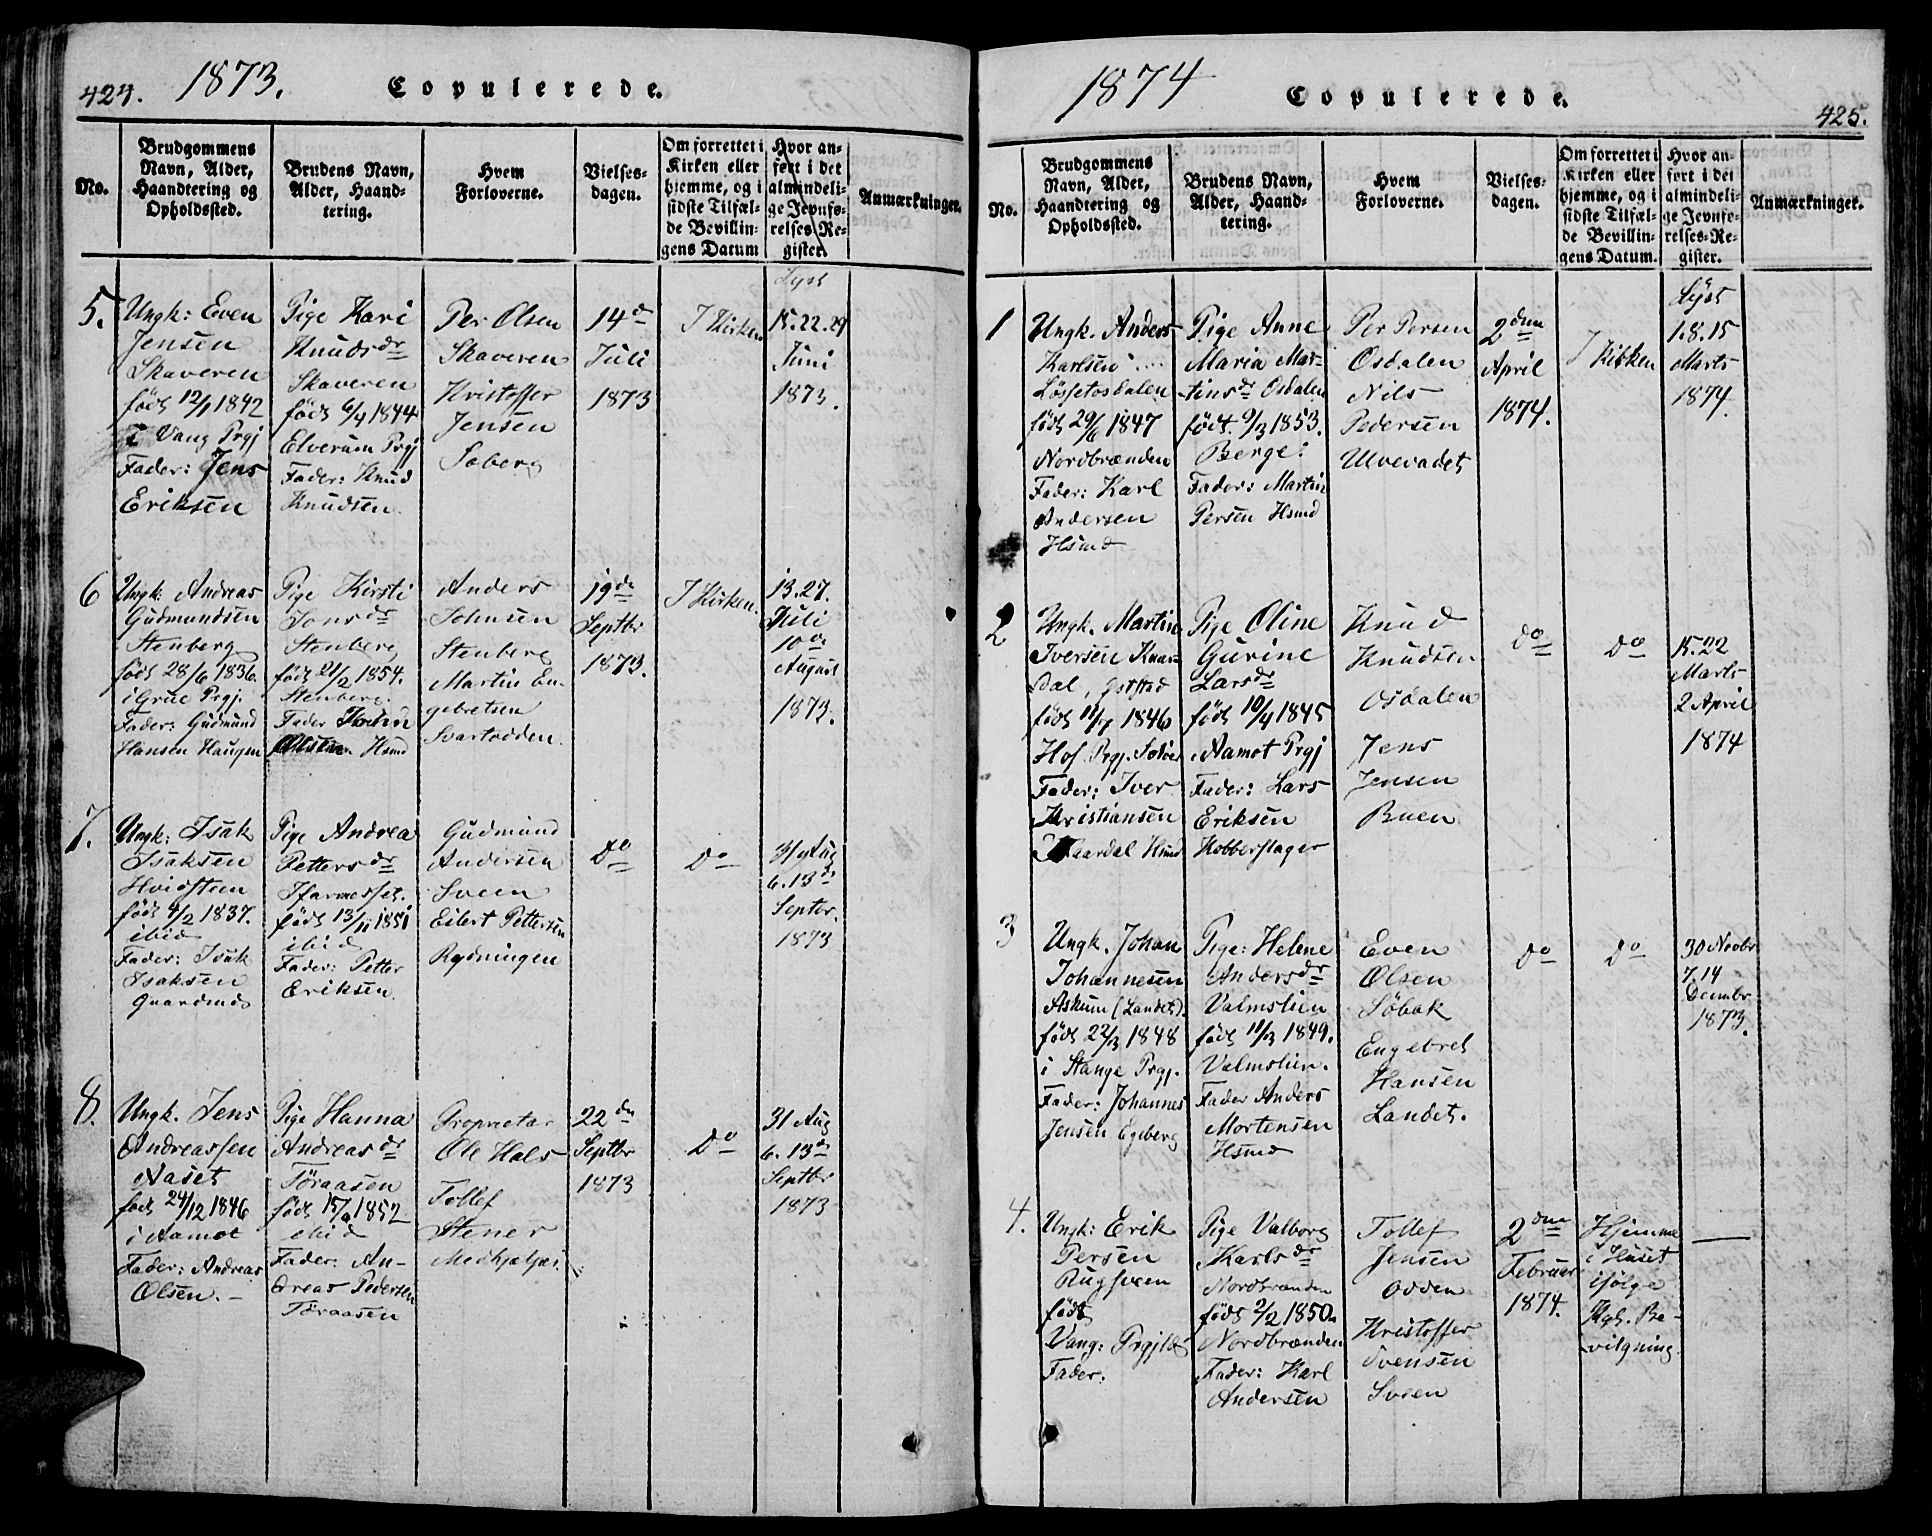 424.
1873.
Copulerede.
No.
Brudgommens
Navn, Alder,
Haandtering og
Opholdssted.
Brudens Navn,
Alder, Haand-
tering.
Hvem
Forloverne.
Vielses-
dagen.
Om forrettet i
Kirken eller
hjemme, og i
sidste Tilfæl-
de Bevillin-
gens Datum
Hvor an-
ført i det
almindeli-
ge Jevnfø-
relses-Re-
gister.
Anmærkninger.
5.
Ungk: Even
Jensen
Skaveren
født 12/1 1842
i Vang Prgj
Fader: Jens
Eriksen
Pige Kari
Knudsdr
Skaveren
født 6/4 1844
Elverum Prgj
Fader: Knud
Knudsen.
Per Olsen
Skaveren
Kristoffer
Jensen
Soberg
14d
Juli
1873
I Kirken
Lyst
15.22.29
Juni
1873.
6
Ungk: Andreas
Gudmundsen
Stenberg
født 28/6 1836.
i Grue Prgj.
Fader: Gudmund
Hansen Haugen
Pige Kirsti
Jonsdr
Stenberg
født 21/2 1854.
Stenberg.
Fader
Olsen Hsmd
Anders
Johnsen
Stenberg
Martin En-
gebretsen
Svartodden.
19de
Septbr
1873.
I Kirken.
13.27.
Juli
10de
August
1873.
7.
Ungk: Isak
Isaksen
Hvidsteen
født 4/2 1837.
ibid
Fader: Isak
Isaksen
Gaardmd
Pige Andrea
Pettersdr
født 13/11 1851
ibid
Fader: Petter
Eriksen.
Gudmund
Andersen
Sveen
Eilert Pettersen
Rydningen
Do
Do
31 Aug
6.13de
Septbr.
1873
8.
Ungk. Jens
Andreassen
Naset
født 24/12 1846
i Aamot
Fader: Andreas
Olsen.
Pige Hanna
Andreasdr
Töraasen
født 15/9 1852
ibid
Fader: An-
dreas Pedersen
Töraasen
Proprietær
Ole Hals
Tollef
Stener
Medhjelper
22dn
Septbr
1873
Do
31 Aug
6.13de
Septbr
1873
1874
Copulerede.
425.
No.
Brudgommens
Navn, Alder,
Haandtering og
Opholdssted.
Brudens Navn,
Alder, Haand-
tering.
Hvem
Forloverne.
Vielses-
dagen.
Om forrettet i
Kirken eller
hjemme, og i
sidste Tilfæl-
de Bevillin-
gens Datum.
Hvor an-
ført i det
almindeli-
ge Jevnfø-
relses-Re-
gister.
Anmærkninger.
1
Ungk. Anders
Karlsen
Løssetosdalen
født 29/6 1847
Nordbrænden
Fader: Karl
Andersen
Hsmd
Pige Anne
Maria Mar-
tinsdr Osdalen
født. 9/3 1853.
Berge:
Fader: Martin
Persen Hsmd
Per Persen
Osdalen
Nils
Pedersen
Ulvevadet
2den
April
1874.
I Kirken
Lyst
1.8.15
Marts
1874.
2
Ungk. Martin
Iversen Knar-
dal,
født 11/7 1846
Hof Prgj. Solør
Fader: Iver
Kristiansen
Hsmd
Pige Oline
Gurine
Larsdr
født 10/4 1845
Aamot Prgj
Fader: Lars
Eriksen
Kobberslager
Knud
Knudsen
Osdalen
Jens
Jensen
Buen
Do
Do
15.22
Marts
2 April
1874
3
Ungk. Johan
Johannesen
Askum (Landet).
født 22/3 1848
i Stange Prgj.
Fader: Johannes
Jensen Egeberg
Pige: Helene
Andersdr
Valmslien
født 11/3 1849.
Valmslien.
Fader Anders
Mortensen
Hsmd
Even
Olsen
Søbak
Engebret
Hansen
Landet.
Do
Do
30 Novbr
7.14
Dcembr.
1873.
4.
Ungk: Erik
Persen
Rugsveen
født
Vang: Prgjld
Fader:
Pige Valborg
Karlsdr
Nordbrænden
født 2/2 1850.
Nordbrænden
Fader: Karl
Andersen
Tollef
Jensen
Odden
Kristoffer
Svensen
Sveen
2den
Februar
1874.
Hjemme
i Huset
ifølge
Kgl. Be-
vilgning.
—